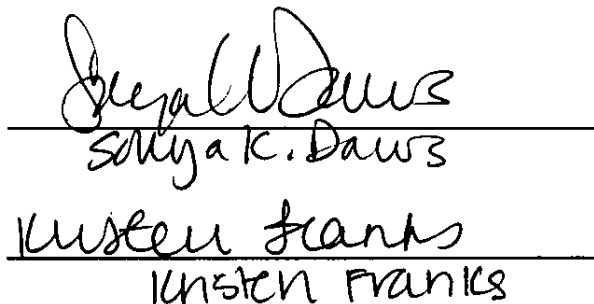 Sonya K Daws
Sonya K. Daws
Kristen Franks
Kristen Franks